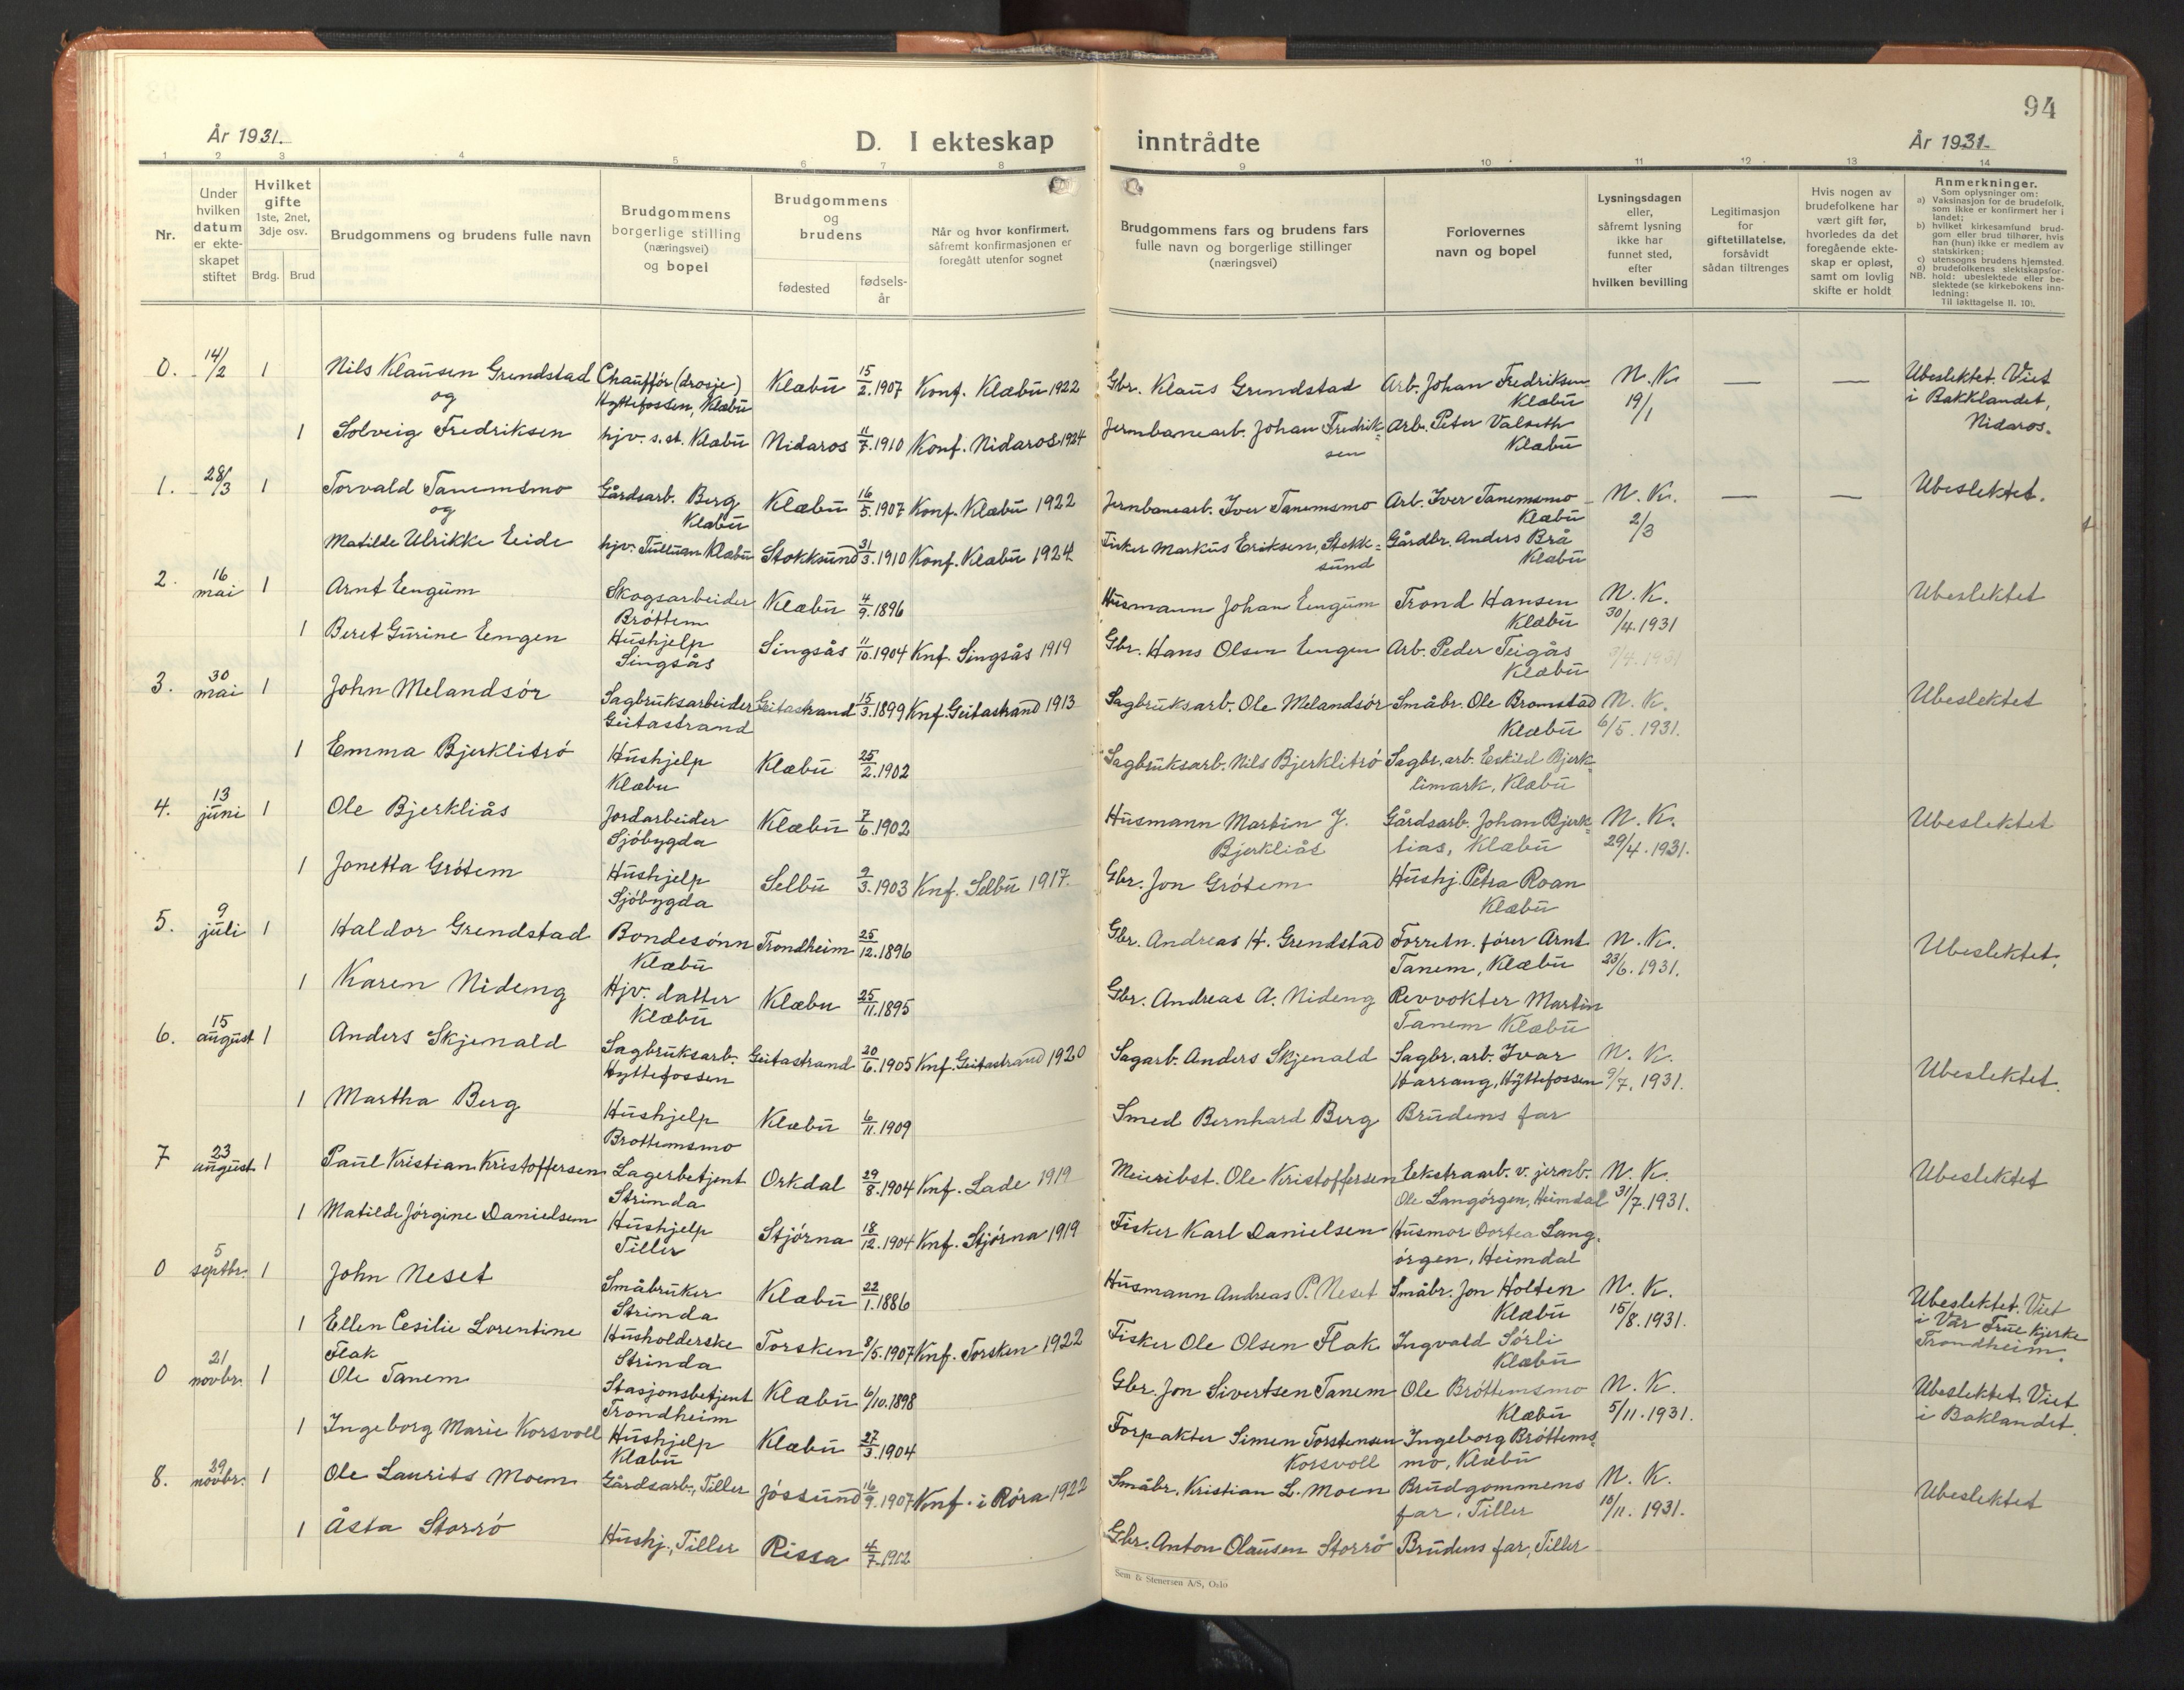 94
År 1931.
D. I ekteskap inntrådte
År 1931.
1 2 3 4 5 6 7 8 9 10 11 12 13 14
Nr.
Under hvilken datum er ekteskapet stiftet
Hvilket gifte 1ste, 2net, 3dje osv.
Brdg. Brud
Brudgommens og brudens fulle navn
Brudgommens borgerlige stilling (næringsvei) og bopel
Brudgommens og brudens
fødested
fødselsår
Når og hvor konfirmert, såfremt konfirmasjonen er foregått utenfor sognet
Brudgommens fars og brudens fars fulle navn og borgerlige stillinger (næringsvei)
Forlovernes navn og bopel
Lysningsdagen eller, såfremt lysning ikke har funnet sted, efter hvilken bevilling
Legitimasjon for giftetillatelse, forsåvidt sådan tiltrenges
Hvis nogen av brudefolkene har vært gift før, hvorledes da det foregående ekteskap er opløst, samt om lovlig skifte er holdt
Anmerkninger.
Som oplysninger om:
a) Vaksinasjon for de brudefolk, som ikke er konfirmert her i landet;
b) hvilket kirkesamfund brudgom eller brud tilhører, hvis han (hun) ikke er medlem av statskirken;
c) utensogns brudens hjemsted.
d) brudefolkenes slektskapsforhold: ubeslektede eller beslektede (se kirkebokens innledning:
NB.
Til iakttagelse II. 10).
0. 14/2 1 Nils Klausen Grendstad Chauffør (drosje) Hyttefossen, Klæbu Klæbu 15/2.1907 Konf. Klæbu 1922 Gbr. Klaus Grendstad Arb. Johan Fredriksen Klæbu N.K. 19/1 — — Ubeslektet. Viet i Bakklandet, Nidaros.
og
1 Solveig Fredriksen hjv. s.st. Klæbu Nidaros 11/7.1910 Konf. Nidaros 1924 Jernbanearb. Johan Fredriksen Arb. Peter Valseth Klæbu
1. 28/3 1 Torvald Tanemsmo Gårdsarb. Berg Klæbu Klæbu 16/5.1907 Konf. Klæbu 1922 Jernbanearb. Iver Tanemsmo Arb. Iver Tanemsmo Klæbu N.K. 2/3 — — Ubeslektet.
og
Matilde Ulrikke Eide hjv. Tulluan Klæbu Stokksund 31/3.1910 Konf. Klæbu 1924 Fisker Markus Eriksen, Stokksund Gårdbr. Anders Brå Klæbu
2. 16 mai 1 Arnt Eengum Skogsarbeider Brøttem Klæbu 4/9.1896 Husmann Johan Eengum Trond Hansen Klæbu N.K. 30/4.1931 Ubeslektet
1 Beret Gurine Eengen Hushjelp Singsås Singsås 11/10.1904 Knf. Singsås 1919 Gbr. Hans Olsen Eengen Arb. Peder Teigås Klæbu
3. 30 mai 1 John Melandsør Sagbruksarbeider Geitastrand Geitastrand 15/3.1899 Knf. Geitastrand 1913 Sagbruksarb. Ole Melandsør Småbr. Ole Bromstad Klæbu N.K. 6/5.1931. Ubeslektet
1 Emma Bjerklitrø Hushjelp Klæbu Klæbu 25/2.1902 Sagbruksarb. Nils Bjerklitrø Sagbr.arb. Eskild Bjerklimark, Klæbu
4. 13 juni 1 Ole Bjerkliås Jordarbeider Sjøbygda Klæbu 7/6.1902 Husmann Martin J. Bjerkliås Gårdsarb. Johan Bjerklias, Klæbu N.K. 29/4.1931. Ubeslektet
1 Jonetta Grøtem Hushjelp Sjøbygda Selbu 2/3.1903 Knf. Selbu 1917. Gbr. Jon Grøtem Hushj. Petra Roan Klæbu
5. 9 juli 1 Haldor Grendstad Bondesønn Klæbu Trondheim 25/12.1896 Gbr. Andreas H. Grendstad Forretn.fører Arnt Tanem, Klæbu N.K. 23/6.1931. Ubeslektet.
1 Karen Nideng Hjv. datter Klæbu Klæbu 25/11.1895 Gbr. Andreas A. Nideng Revvokter Martin Tanem Klæbu
6. 15 august 1 Anders Skjenald Sagbruksarb. Hyttefossen Geitastrand 20/6.1905 Knf. Geitastrand 1920 Sagarb. Anders Skjenald Sagbr.arb. Ivar Harrang, Hyttefossen N.K. 9/7.1931. Ubeslektet.
1 Martha Berg Hushjelp Brøttemsmo Klæbu 6/11.1909 Smed Bernhard Berg Brudens far
7 23 august 1 Paul Kristian Kristoffersen Lagerbetjent Strinda Orkdal 29/8.1904 Knf. Lade 1919 Meieribst. Ole Kristoffersen Eekstraarb. v. jernb. Ole Langørgen, Heimdal N.K. 31/7.1931. Ubeslektet
1 Matilde Jørgine Danielsen Hushjelp Tiller Stjørna 18/12.1904 Knf. Stjørna 1919 Fisker Karl Danielsen Husmor Dortea Langørgen, Heimdal
0 5 septbr. 1 John Neset Småbruker Strinda Klæbu 22/1.1886 Husmann Andreas P. Neset Småbr. Jon Holten Klæbu N.K. 15/8.1931. Ubeslektet. Viet i Vår Frue kjerke Trondheim.
1 Ellen Cesilie Lorentine Flak Husholderske Strinda Torsken 8/5.1907 Knf. Torsken 1922 Fisker Ole Olsen Flak Ingvald Sørli Klæbu
0 21 novbr. 1 Ole Tanem Stasjonsbetjent Trondheim Klæbu 6/10.1898 Gbr. Jon Sivertsen Tanem Ole Brøttemsmo Klæbu N.K. 5/11.1931. Ubeslektet. Viet i Baklandet.
1 Ingeborg Marie Korsvoll Hushjelp Klæbu Klæbu 27/3.1904 Forpakter Simen Torstensen Korsvoll Ingeborg Brøttemsmo, Klæbu
8. 29 novbr. 1 Ole Laurits Moen Gårdsarb., Tiller Jøssund 16/9.1907 Knf. i Røra 1922 Småbr. Kristian L. Moen Brudgommens far, Tiller N.K. /11.1931. Ubeslektet
1 Åsta Storrø Hushj., Tiller Rissa 4/7.1912 Gbr. Anton Olausen Storrø Brudens far, Tiller
Sem & Stenersen A/S, Oslo